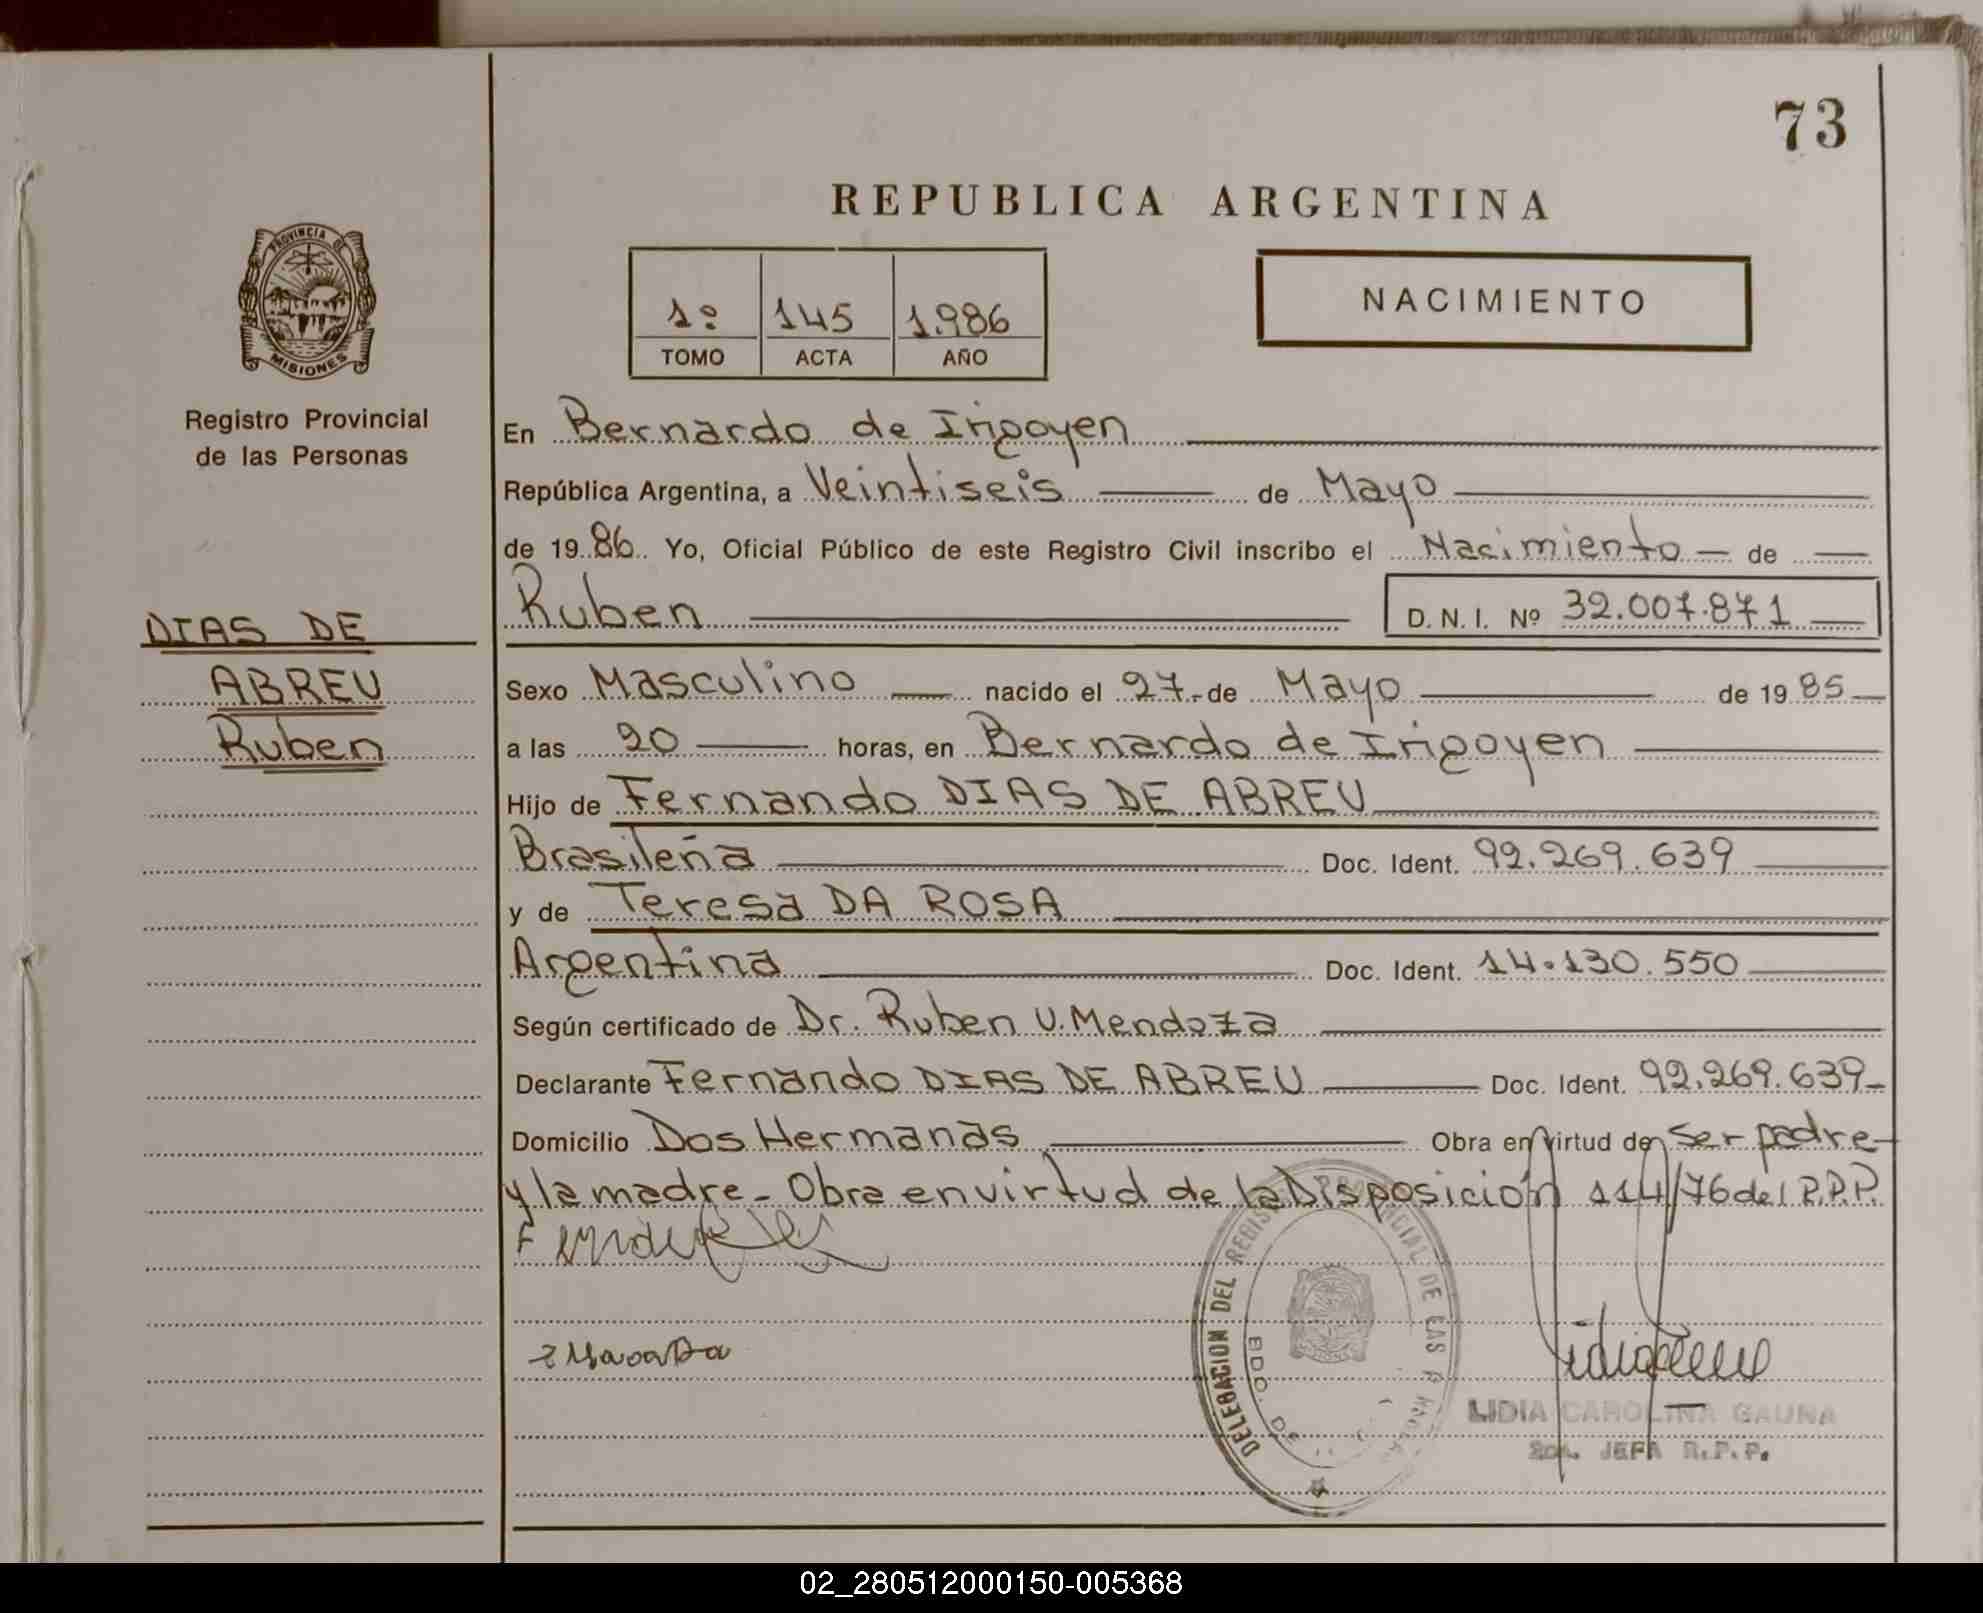 73
REPUBLICA ARGENTINA
PROVINCIA DE
MISIONES
Registro Provincial
de las Personas
1º 145 1.986
TOMO ACTA AÑO
NACIMIENTO
En Bernardo de Irigoyen
República Argentina, a Veintiseis de Mayo
de 1986. Yo, Oficial Público de este Registro Civil inscribo el Nacimiento de
Ruben D. N. I. Nº 32.007.871
DIAS DE
ABREU
Ruben
Sexo Masculino nacido el 27 de Mayo de 1985
a las 20 horas, en Bernardo de Irigoyen
Hijo de Fernando DIAS DE ABREU
Brasileña Doc. Ident. 92.269.639
y de Teresa DA ROSA
Argentina Doc. Ident. 14.130.550
Según certificado de Dr. Ruben U. Mendoza
Declarante Fernando DIAS DE ABREU Doc. Ident. 92.269.639
Domicilio Dos Hermanas Obra en virtud de ser padre
y la madre - Obra en virtud de la Disposición 114/76 del R.P.P.
DELEGACION DEL REGISTRO PROVINCIAL DE LAS
BDO. DE
LIDIA CAROLINA GAUNA
JEFA R.P.P.
02_280512000150-005368